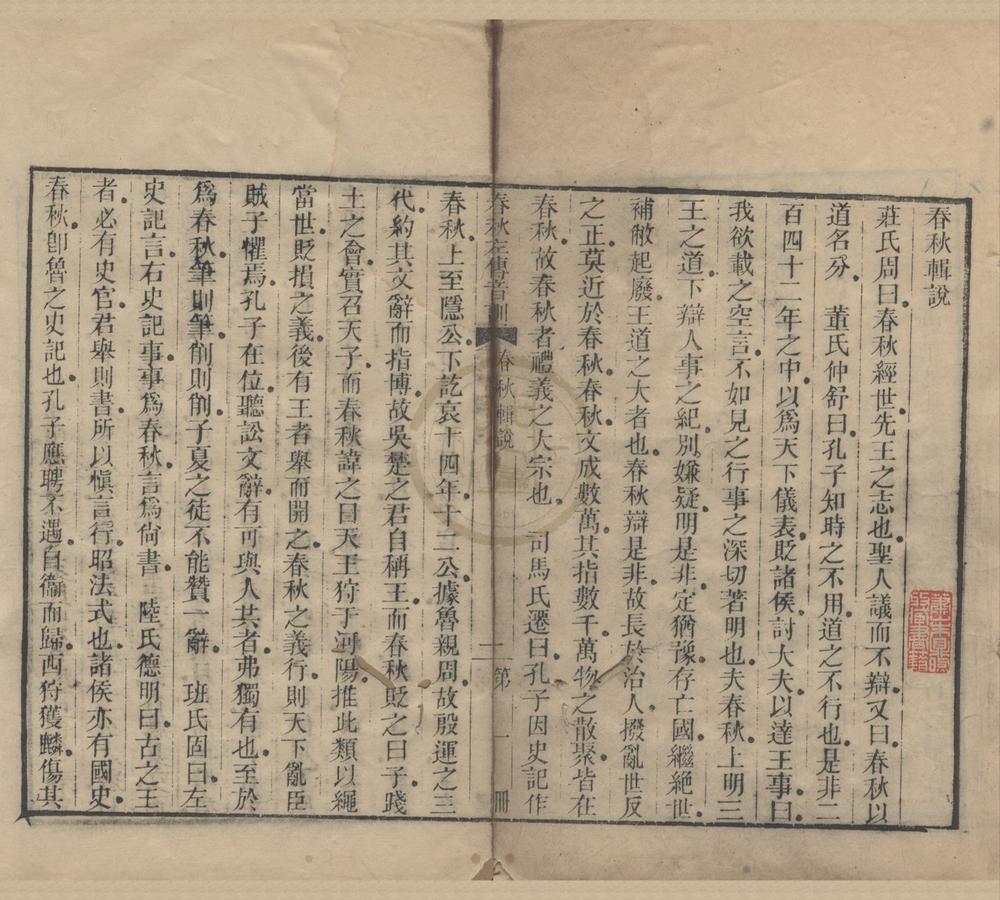 春秋輯說
莊氏周曰春秋經世先王之志也聖人議而不辯又曰春秋以
道名分　董氏仲舒曰孔子知時之不用道之不行也是非二
百四十二年之中以爲天下儀表貶諸侯討大夫以達王事曰
我欲載之空言不如見之行事之深切著明也夫春秋上明三
王之道下辯人事之紀別嫌疑明是非定猶豫存亡國繼絕世
補敝起廢王道之大者也春秋辯是非故長於治人撥亂世反
之正莫近於春秋春秋文成數萬其指數千萬物之散聚皆在
春秋故春秋者禮義之大宗也　司馬氏遷曰孔子因史記作
春秋左傳音訓　春秋輯說　二　第一冊
春秋上至隱公下訖哀十四年十二公據魯親周故殷運之三
代約其文辭而指博故吳楚之君自稱王而春秋貶之曰子踐
土之會實召天子而春秋諱之曰天王狩于河陽推此類以繩
當世貶損之義後有王者舉而開之春秋之義行則天下亂臣
賊子懼焉孔子在位聽訟文辭有可與人共者弗獨有也至於
爲春秋筆則筆削則削子夏之徒不能贊一辭　班氏固曰左
史記言右史記事事爲春秋言爲尙書　陸氏德明曰古之王
者必有史官君舉則書所以愼言行昭法式也諸侯亦有國史
春秋卽魯之史記也孔子應聘不遇自衞而歸西狩獲麟傷其